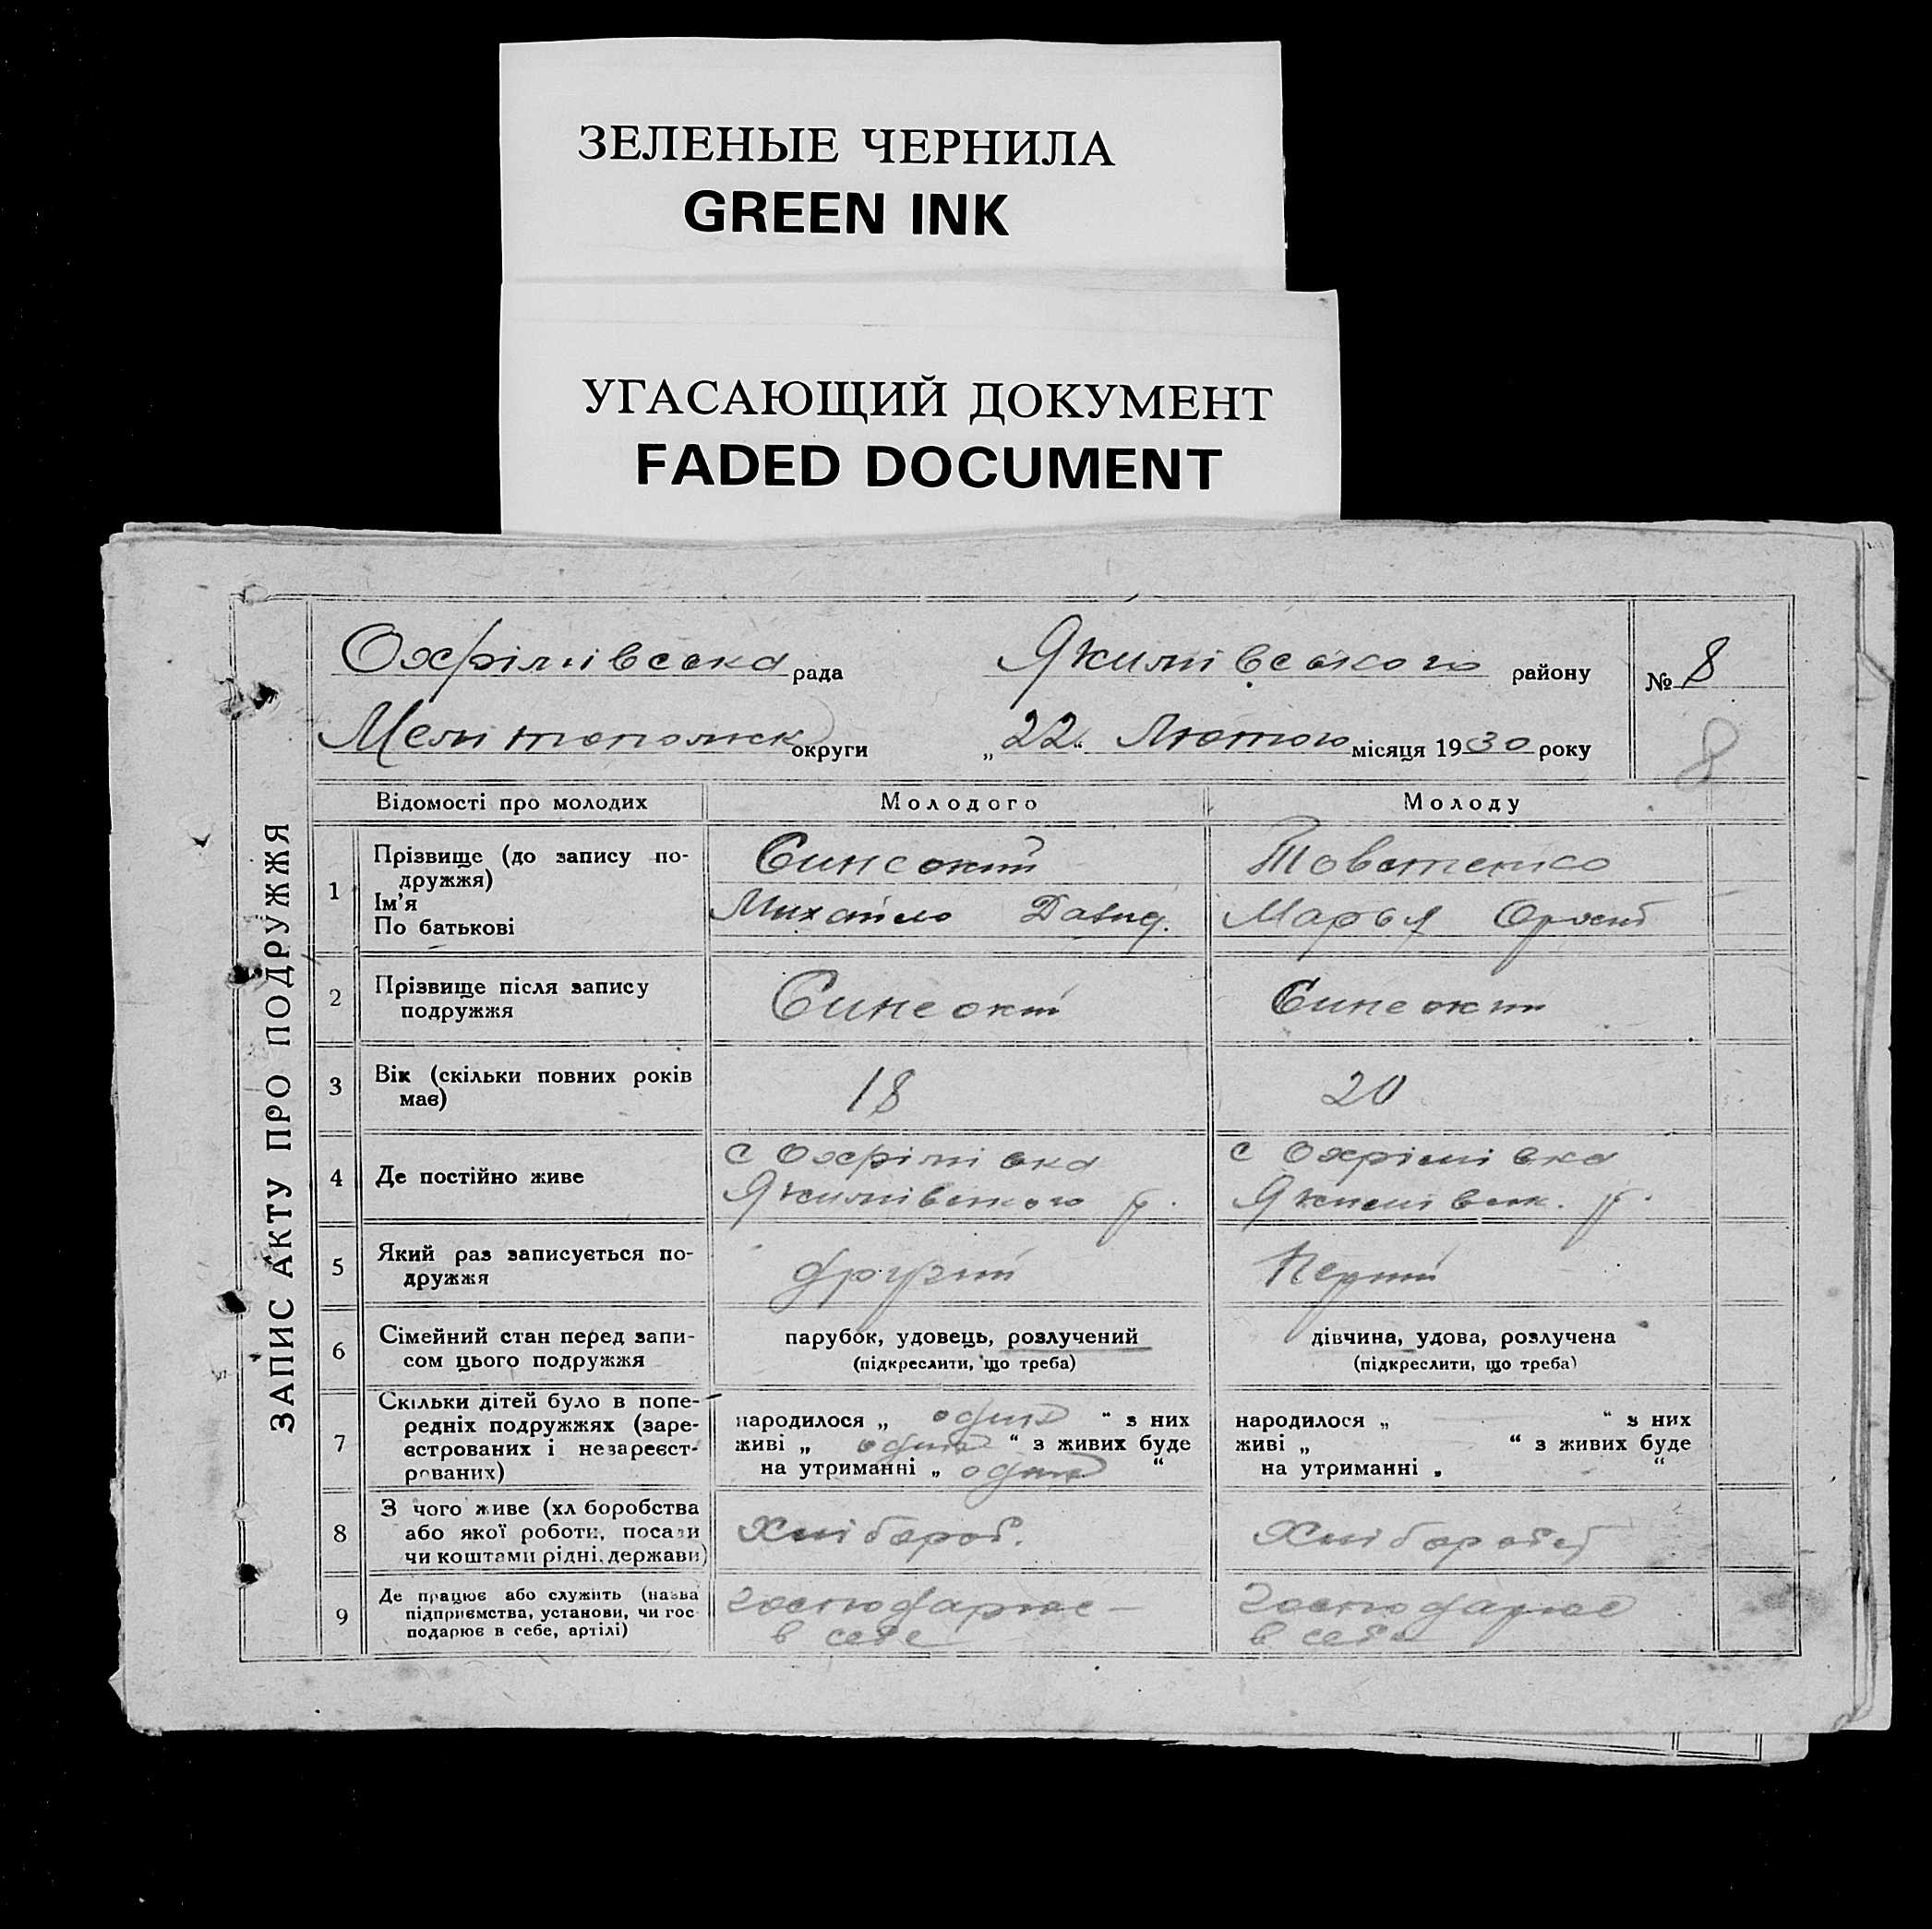 ЗЕЛЕНЫЕ ЧЕРНИЛА
GREEN INK
УГАСАЮЩИЙ ДОКУМЕНТ
FADED DOCUMENT
ЗАПИС АКТУ ПРО ПОДРУЖЖЯ
Охрімівська рада Якимівського району № 8
Мелитопольск округи „22“ Лютого місяця 1930 року
8
Відомості про молодих Молодого Молоду
1 Прізвище (до запису подружжя) Синеокий
Ім'я Михайло Марья
По батькові Давид.
2 Прізвище після запису подружжя Синеокий Синеокий
3 Вік (скільки повних років має) 18 20
4 Де постійно живе с Охрімівка с Охрімівка
Якимівського р. Якимівськ. р.
5 Який раз записується подружжя другий Перший
6 Сімейний стан перед записом цього подружжя парубок, удовець, розлучений дівчина, удова, розлучена
(підкреслити, що треба) (підкреслити, що треба)
7 Скільки дітей було в попередніх подружжях (зареєстрованих і незареєстрованих) народилося „ один “ з них народилося „ “ з них
живі „ один “ з живих буде живі „ “ з живих буде
на утриманні „ один “ на утриманні „ “
8 З чого живе (хл боробства або якої роботи, посади чи коштами рідні, держави) Хлібороб. Хлібороб
9 Де працює або служить (назва підприємства, установи, чи господарює в себе, артілі) господарює – господарює
в себе в себе